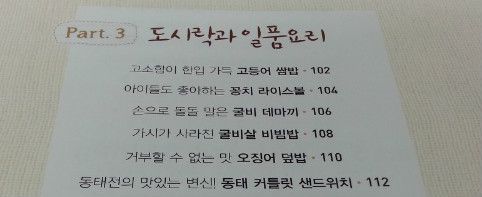 Part. 3 도시락과 일품요리
고소함이 한입 가득 고등어 쌈밥 • 102
아이들도 좋아하는 꽁치 라이스볼 • 104
손으로 돌돌 말은 굴비 데마끼 • 106
가시가 사라진 굴비살 비빔밥 • 108
거부할 수 없는 맛 오징어 덮밥 • 110
동태전의 맛있는 변신! 동태 커틀릿 샌드위치 • 112